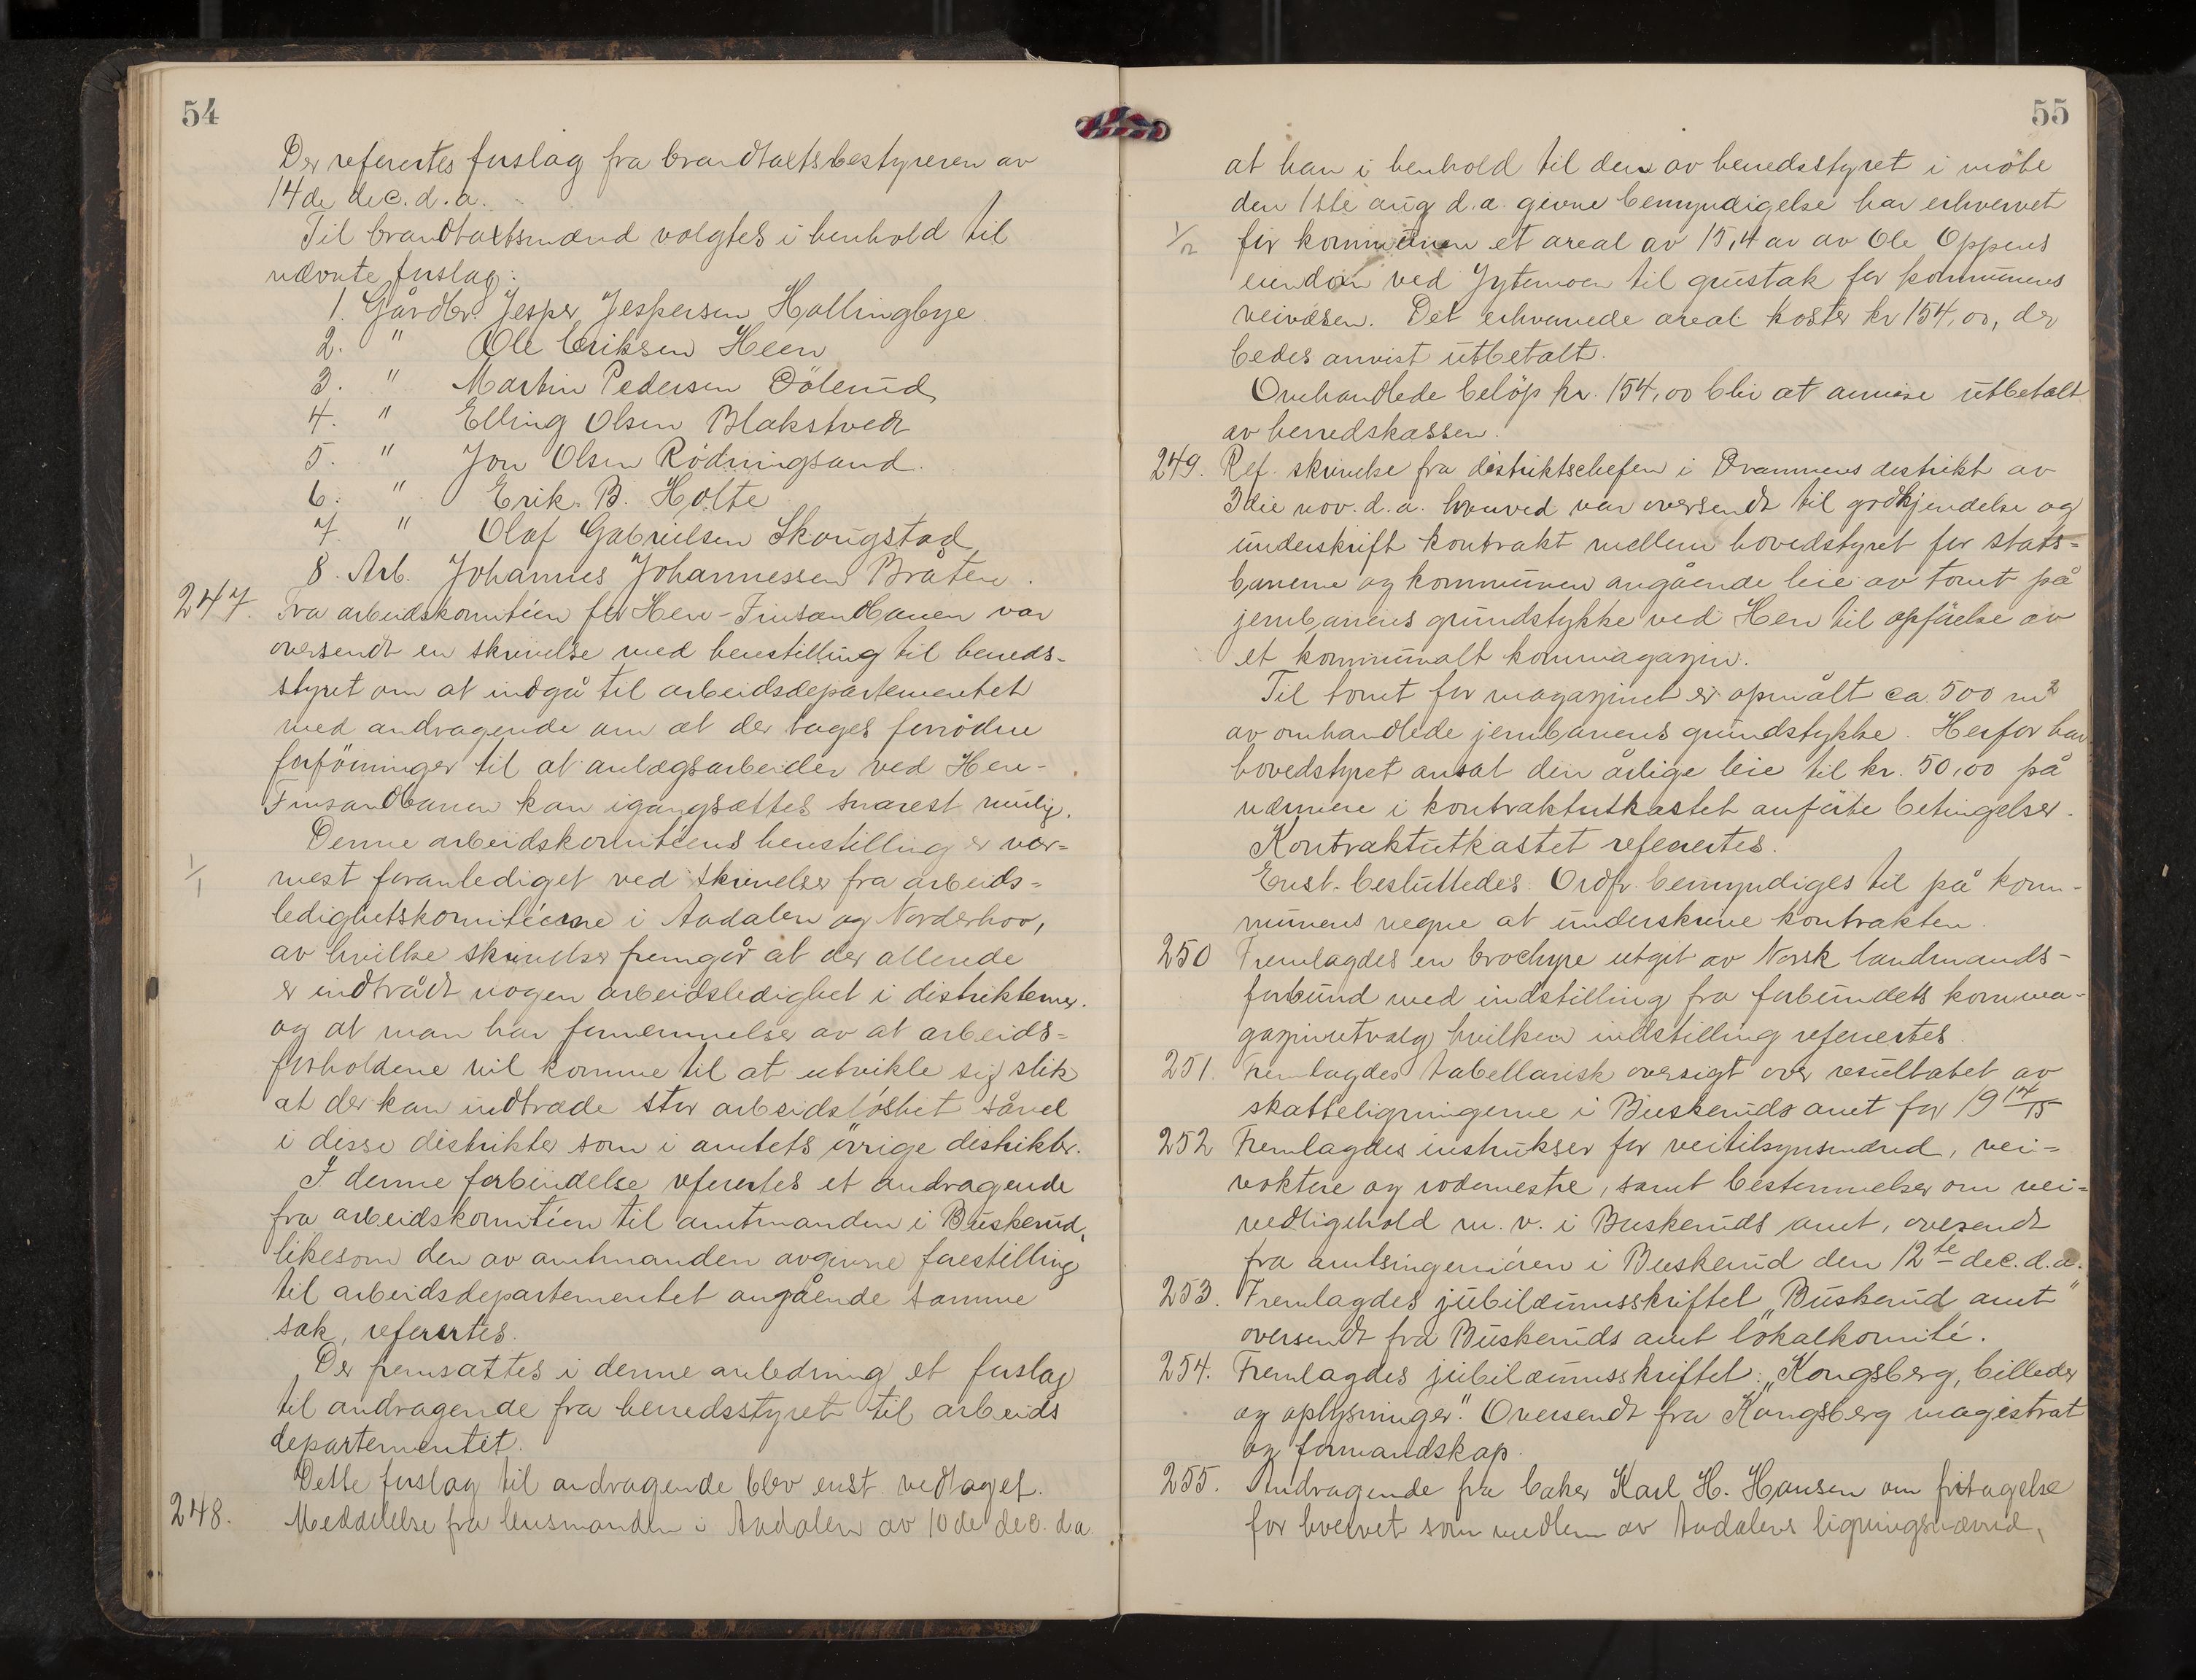 54
Der refereertes forslag fra brandtakstbestyreren av
14de dec. d.a.
Til brandtakstmænd valgtes i henhold til
nævnte forslag:
1. Gårdbr. Jesper Jespersen Hallingbye
2. " Ole Eriksen Heen
3. " Martin Pedersen Dölerud
4. " Elling Olsen Blakstvedt
5. " Jon Olsen Rödningsand.
6. " Erik B. Holte
7. " Olaf Gabrielsen Skougstad
8. Arb. Johannes Johannessen Bråten.
247. Fra arbeidskomitéen for Hen-Finsandbanen var
oversendt en skrivelse med henstilling til herreds-
styret om at indgå til arbeidsdepartementet
med andragende om at der tages fornödne
forföininger til at anlægsarbeider ved Hen-
Finsandbanen kan igangsættes snarest mulig.
1/1 Denne arbeidskomitéens henstilling er nær=
mest foranlediget ved skrivelser fra arbeids=
ledighetskomitéerne i Aadalen og Norderhov,
av hvilke skrivelser fremgår at der allerede
er indtrådt nogen arbeidsledighet i distrikterne.
og at man har fornemmelser av at arbeids=
forholdene vil komme til at utvikle sig slik
at der kan indtræde stor arbeidslöshet såvel
i disse distrikter som i amtets övrige distrikter.
I denne forbindelse refertes et andragende
fra arbeidskomitéen til amtmanden i Buskerud,
likesom den av amtmanden avgivne forestilling
til arbeidsdepartementet angående samme
sak, refertes.
Der fremsattes i denne anledning et forslag
til andragende fra herredsstyret til arbeids
departementet.
Dette forslag til andragende blev enst. vedtaget.
248. Meddelelse fra lensmanden i Aadalen av 10de dec. d.a.
55
at han i henhold til den av herredsstyret i möte
den 1ste aug d.a. givne bemyndigelse har erhvervet
1/2 for kommunen et areal av 15,4 ar av Ole Oppens
eiendom ved Jytemoen til grustak for kommunens
veivæsen. Det erhvervede areal koster kr 154,00, der
bedes anvist utbetalt.
Omhandlede belöp kr. 154,00 blir at anvise utbetalt
av herredskassen.
249. Ref. skrivelse fra distriktschefen i Drammens distrikt av
3die nov. d.a. hvorved var oversendt til godkjendelse og
underskrift kontrakt mellem hovedstyret for stats=
banerne og kommunen angående leie av tomt på
jernbanens grundstykke ved Hen til opförelse av
et kommunalt kornmagazin.
Til tomt for magazinet er opmålt ca. 500 m2
av omhandlede jernbanens grundstykke. Herfor har
hovedstyret ansat den årlige leie til kr. 50,00 på
nærmere i kontraktutkastet anförte betingelser.
Kontraktutkastet refereertes.
Enst. besluttedes: Ordf. bemyndiges til på kom-
munens vegne at underskrive kontrakten.
250 Fremlagdes en brochyre utgit av Norsk landmands-
forbund med indstilling fra forbundets kornma-
gazinutvalg hvilken indstilling refereertes.
251. Fremlagdes tabellarisk oversigt over resultatet av
skatteligningerne i Buskeruds amt for 1914/15
252 Fremlagdes instrukser for veitilsynsmænd, vei=
voktere og rodemestre, samt bestemmelser om vei=
vedligehold m. v. i Buskeruds amt, oversendt
fra amtsingeniören i Buskerud den 12te dec. d.a.
253. Fremlagdes jubilæumsskriftet „Buskerud amt"
oversendt fra Buskeruds amt lokalkomité.
254. Fremlagdes jubilæumsskriftet: „Kongsberg, billeder
og oplysninger." Oversendt fra Kongsberg magistrat
og formandskap.
255. Andragende fra baker Karl H. Hansen om fritagelse
for hvervet som medlem av Aadalens ligningsnævnd,